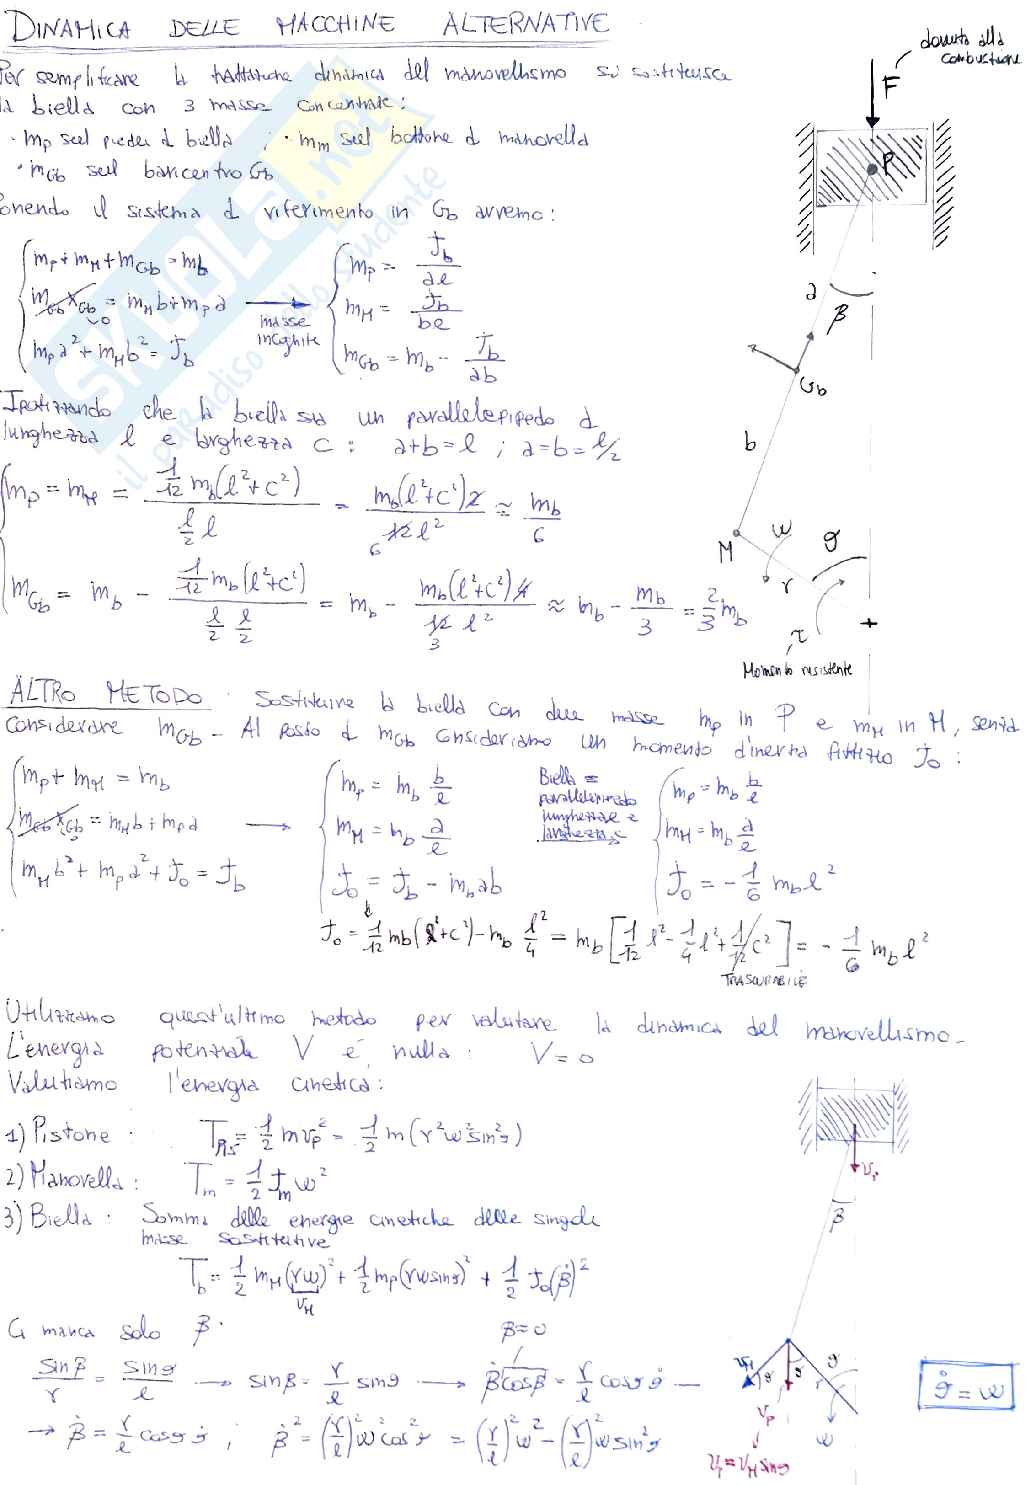 DINAMICA DELLE MACCHINE ALTERNATIVE
Per semplificare la trattazione dinamica del manovellismo si sostituisce
la biella con 3 masse concentrate:
· mp sul piede di biella ; · mm sul bottone di manovella
· mGb sul baricentro Gb
Ponendo il sistema di riferimento in Gb avremo:
mP + mM + mGb = mb
mGb xGb = mM b + mP a
=0
mP a² + mM b² = Jb
masse incognite
mP = Jb / al
mM = Jb / bl
mGb = mb - Jb / ab
Ipotizzando che la biella sia un parallelepipedo di
lunghezza l e larghezza c : a+b=l ; a=b=l/2
mP = mM = 1/12 mb(l²+c²) / (l/2 l) = mb(l²+c²)2 / 12 l² ≈ mb/6
6
mGb = mb - 1/12 mb(l²+c²) / (l/2 l/2) = mb - mb(l²+c²)4 / 12 l² ≈ mb - mb/3 = 2/3 mb
3
dovuta alla combustione
F
P
a
β
Gb
b
M
ω
ϑ
r
τ
Momento resistente
ALTRO METODO : Sostituire la biella con due masse mp in P e mM in M, senza
considerare mGb - Al posto di mGb consideriamo un momento d'inerzia fittizio J0 :
mP + mM = mb
mGb xGb = mM b + mP a
mM b² + mP a² + J0 = Jb
mP = mb b/l
mM = mb a/l
J0 = Jb - mb ab
Biella =
parallelepipedo
lunghezza l e
larghezza c
mP = mb b/l
mM = mb a/l
J0 = - 1/6 mb l²
J0 = 1/12 mb(l²+c²) - mb l²/4 = mb [1/12 l² - 1/4 l² + 1/12 c²] = - 1/6 mb l²
TRASCURABILE
Utilizziamo quest'ultimo metodo per valutare la dinamica del manovellismo -
L'energia potenziale V è nulla : V = 0
Valutiamo l'energia cinetica :
1) Pistone : TPis = 1/2 m vp² = 1/2 m (r²ω² sin²ϑ)
2) Manovella : Tm = 1/2 Jm ω²
3) Biella : Somma delle energie cinetiche delle singole
masse sostitutive
Tb = 1/2 mM (rω)² + 1/2 mP (rω sinϑ)² + 1/2 J0 (β̇)²
vM
Ci manca solo β̇ .
β≈0
sinβ / r = sinϑ / l → sinβ = r/l sinϑ → β̇ cosβ = r/l cosϑ ϑ̇ —
→ β̇ = r/l cosϑ ϑ̇ ; β̇² = (r/l)² ω² cos²ϑ = (r/l)² ω² - (r/l)² ω sin²ϑ
vP
β
vM
ϑ
ϑ
ϑ
vp
ω
vP = vM sinϑ
ϑ̇ = ω
SKUOLA.net
il paradiso dello studente